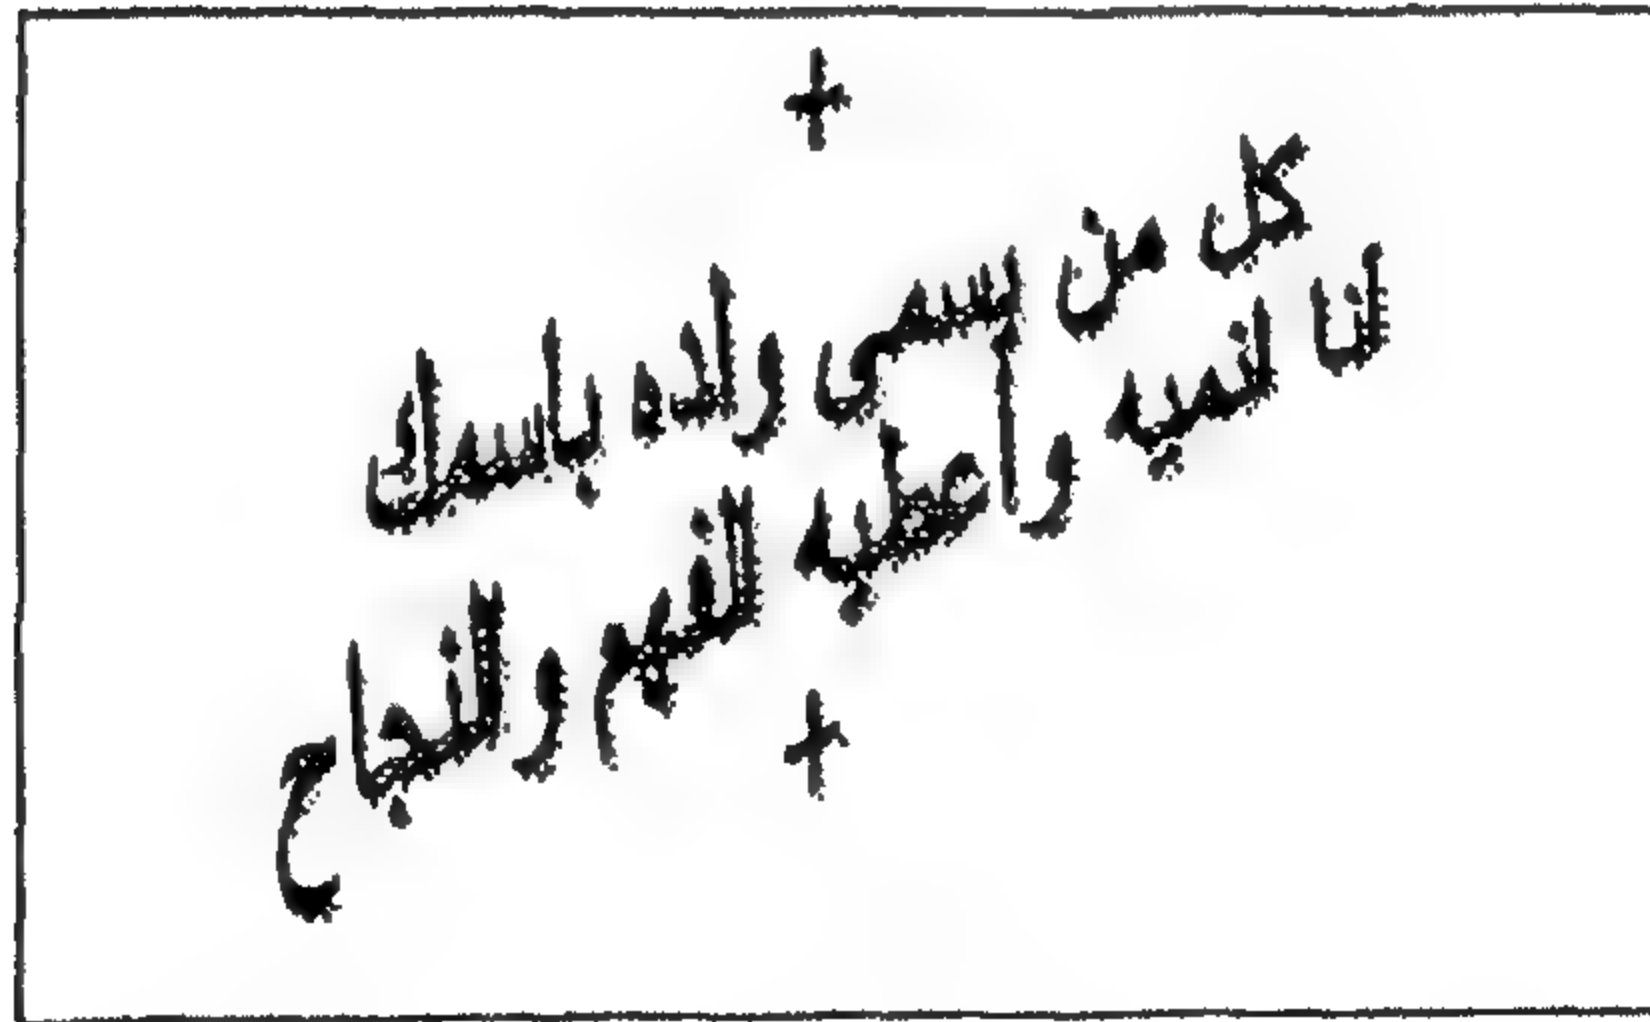 +
كل من يسمى ولده باسمك
انا انميه وأعطيه الفهم والنجاح
+